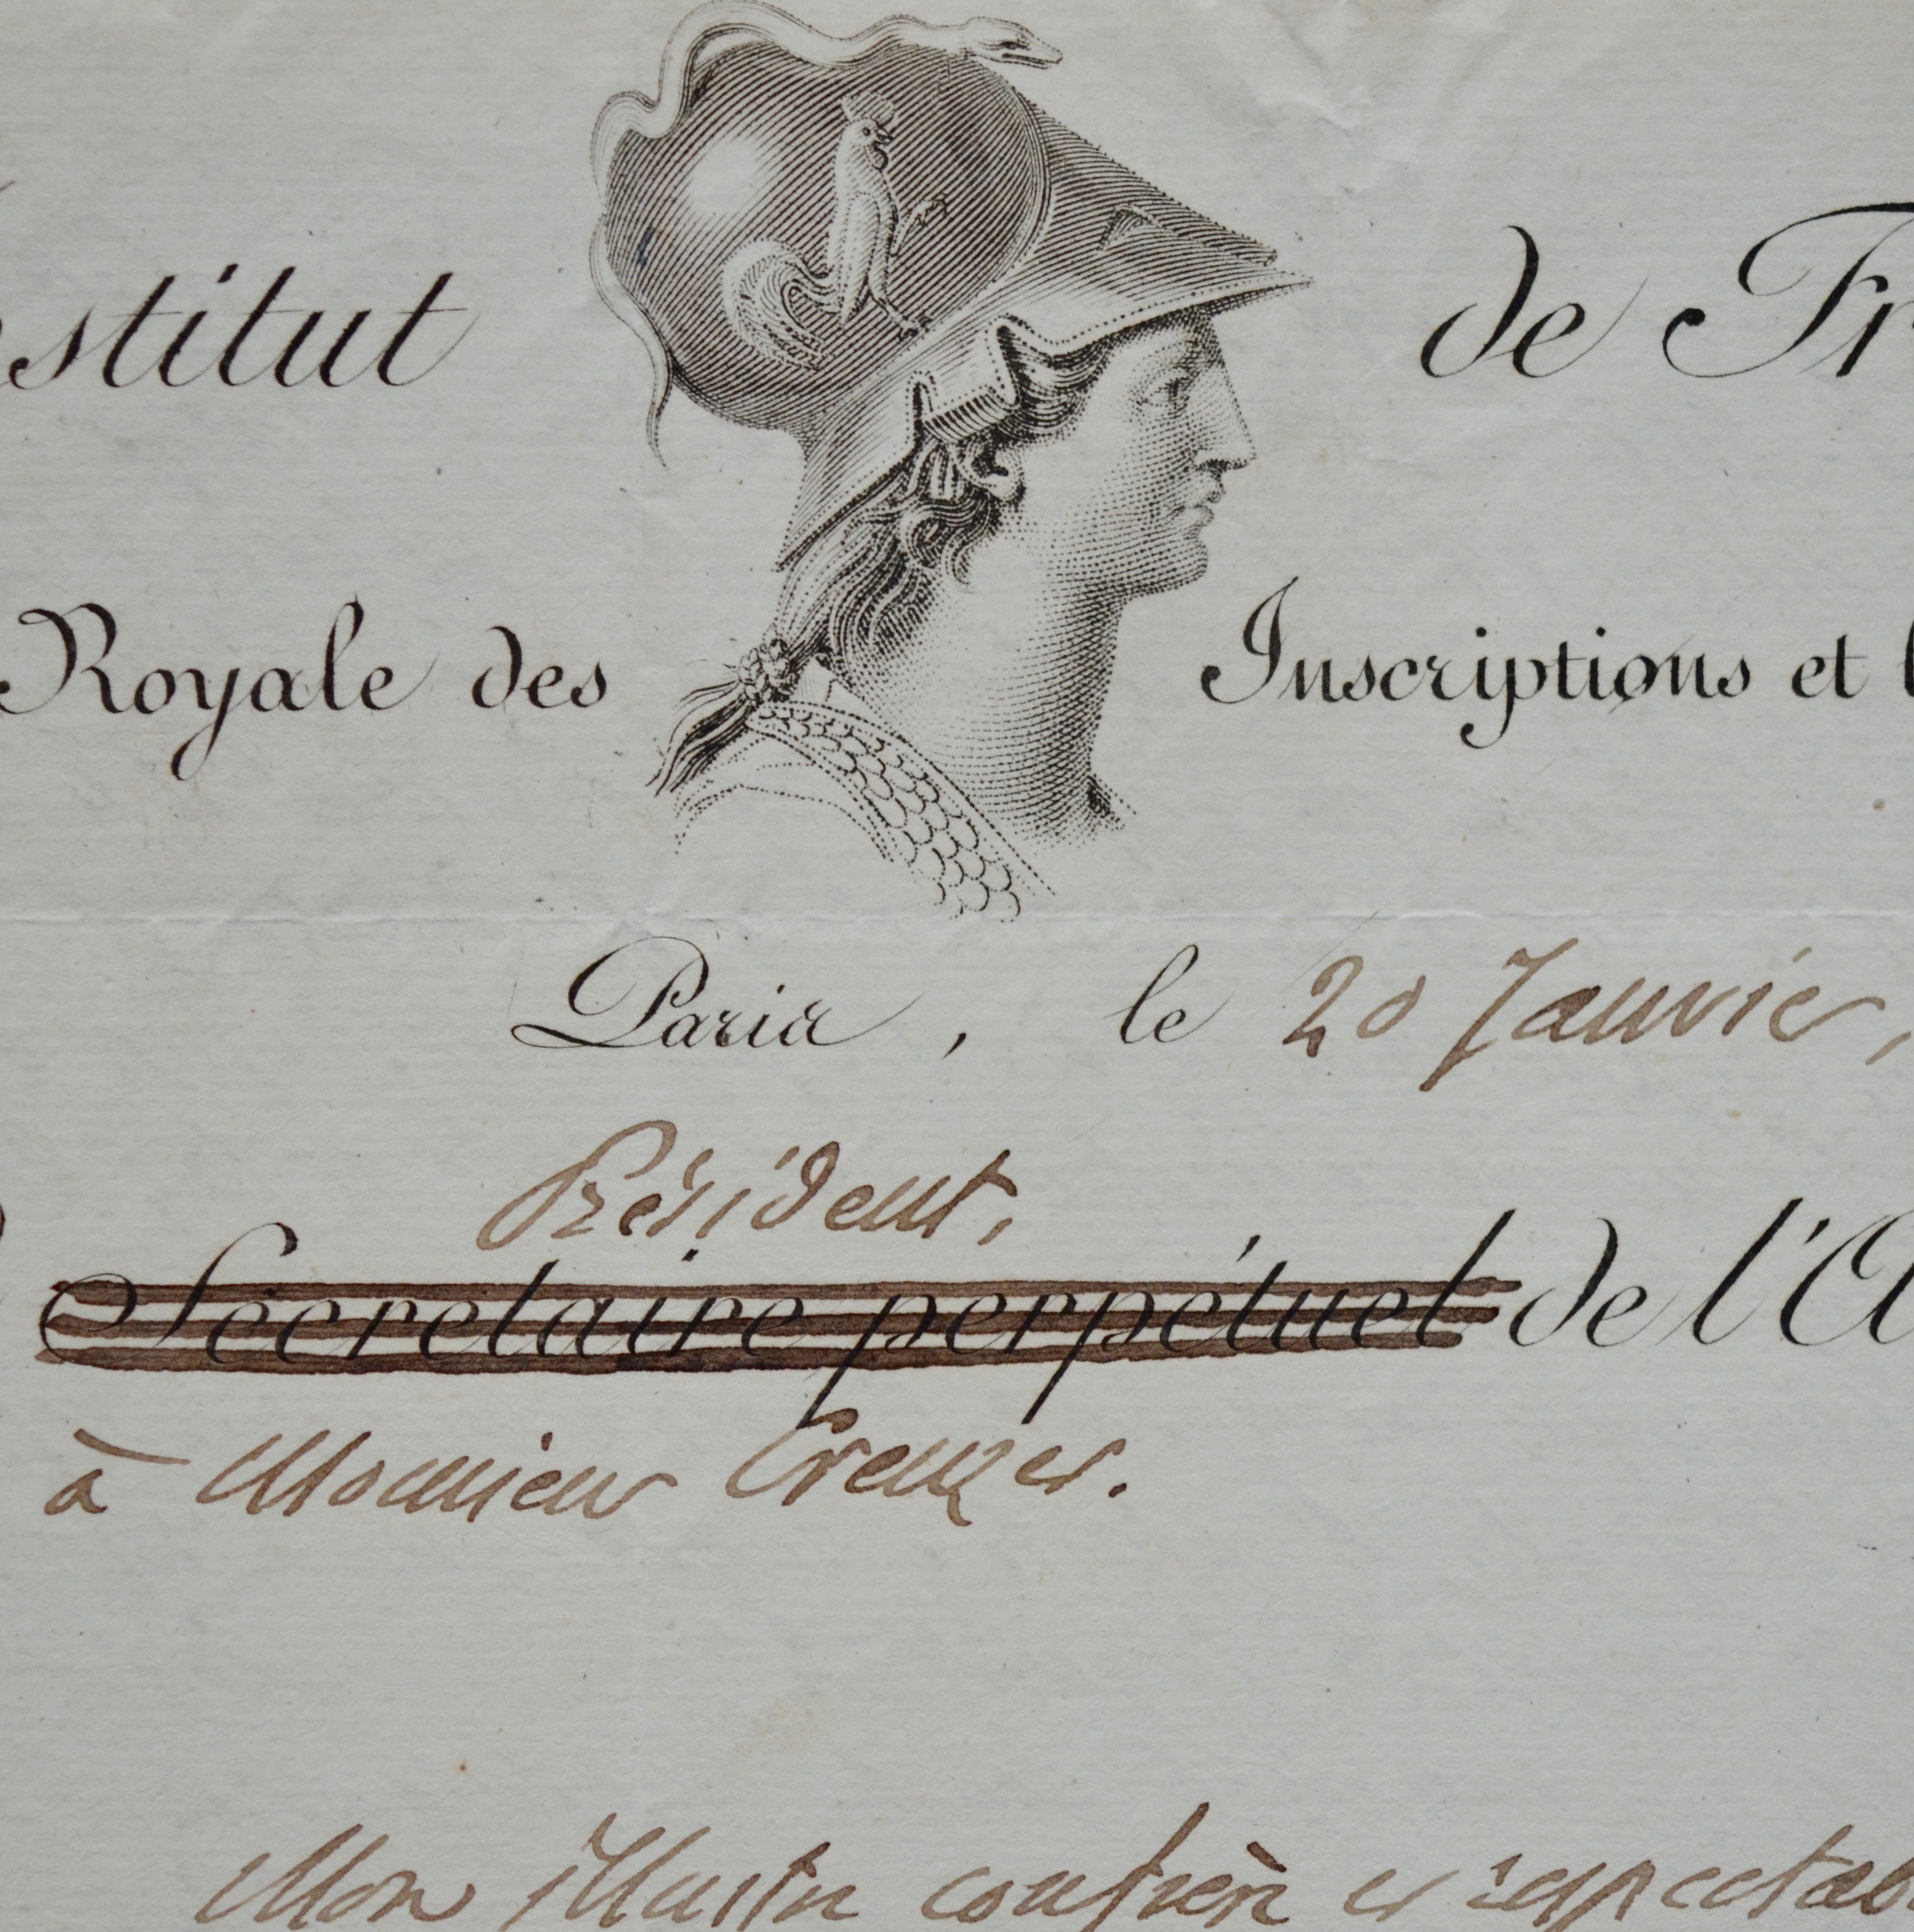 stitut de Fr
Royale des Inscriptions et
Paris, le 20 Janvier,
Président,
Sécretaire perpétuel de l'A
à Monsieur Creuzer.
Mon illustre confrère et respectab